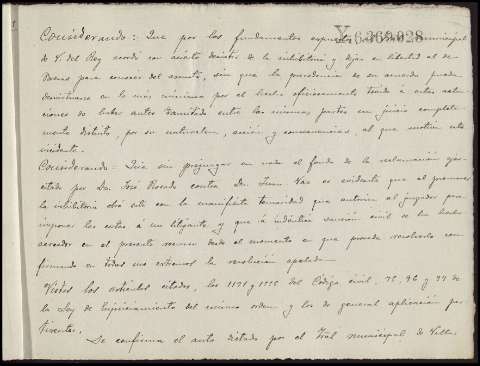 Y.6.369.028
Considerando: Que por los fundamentos municipal
de V. del Rey acordó con acierto desistir de la inhibitoria y dejar en libertad al de
para conocer del asunto, sin que la procedencia de su acuerdo pueda
desvirtuarse en lo más mínimo por el hecho traido á estas actua-
ciones de haber antes tramitado entre las mismas partes un juicio completa-
mente distinto, por su naturaleza, acción y consecuencias, al que motiva este
incidente.
Considerando: Que sin prejuzgar en nada el fondo de la reclamación ejer-
citada por Dn. José Rosado contra Dn. Juan es evidente que al promover
la inhibitoria obró este con la manifiesta temeridad que autoriza al juzgador para
imponer las costas á un litigante y que á idéntica sanción civil se ha hecho
acreedor en el presente recurso desde el momento en que procede resolverlo con-
firmando en todos sus extremos la resolución apelada.
Vistos los artículos citados, los 1171 y del Código Civil, 72, 96 y 99 de
la Ley de Enjuiciamiento del mismo orden y los de general aplicación per-
tinentes.
Se confirma el auto dictado por el Tbral municipal de Villa-